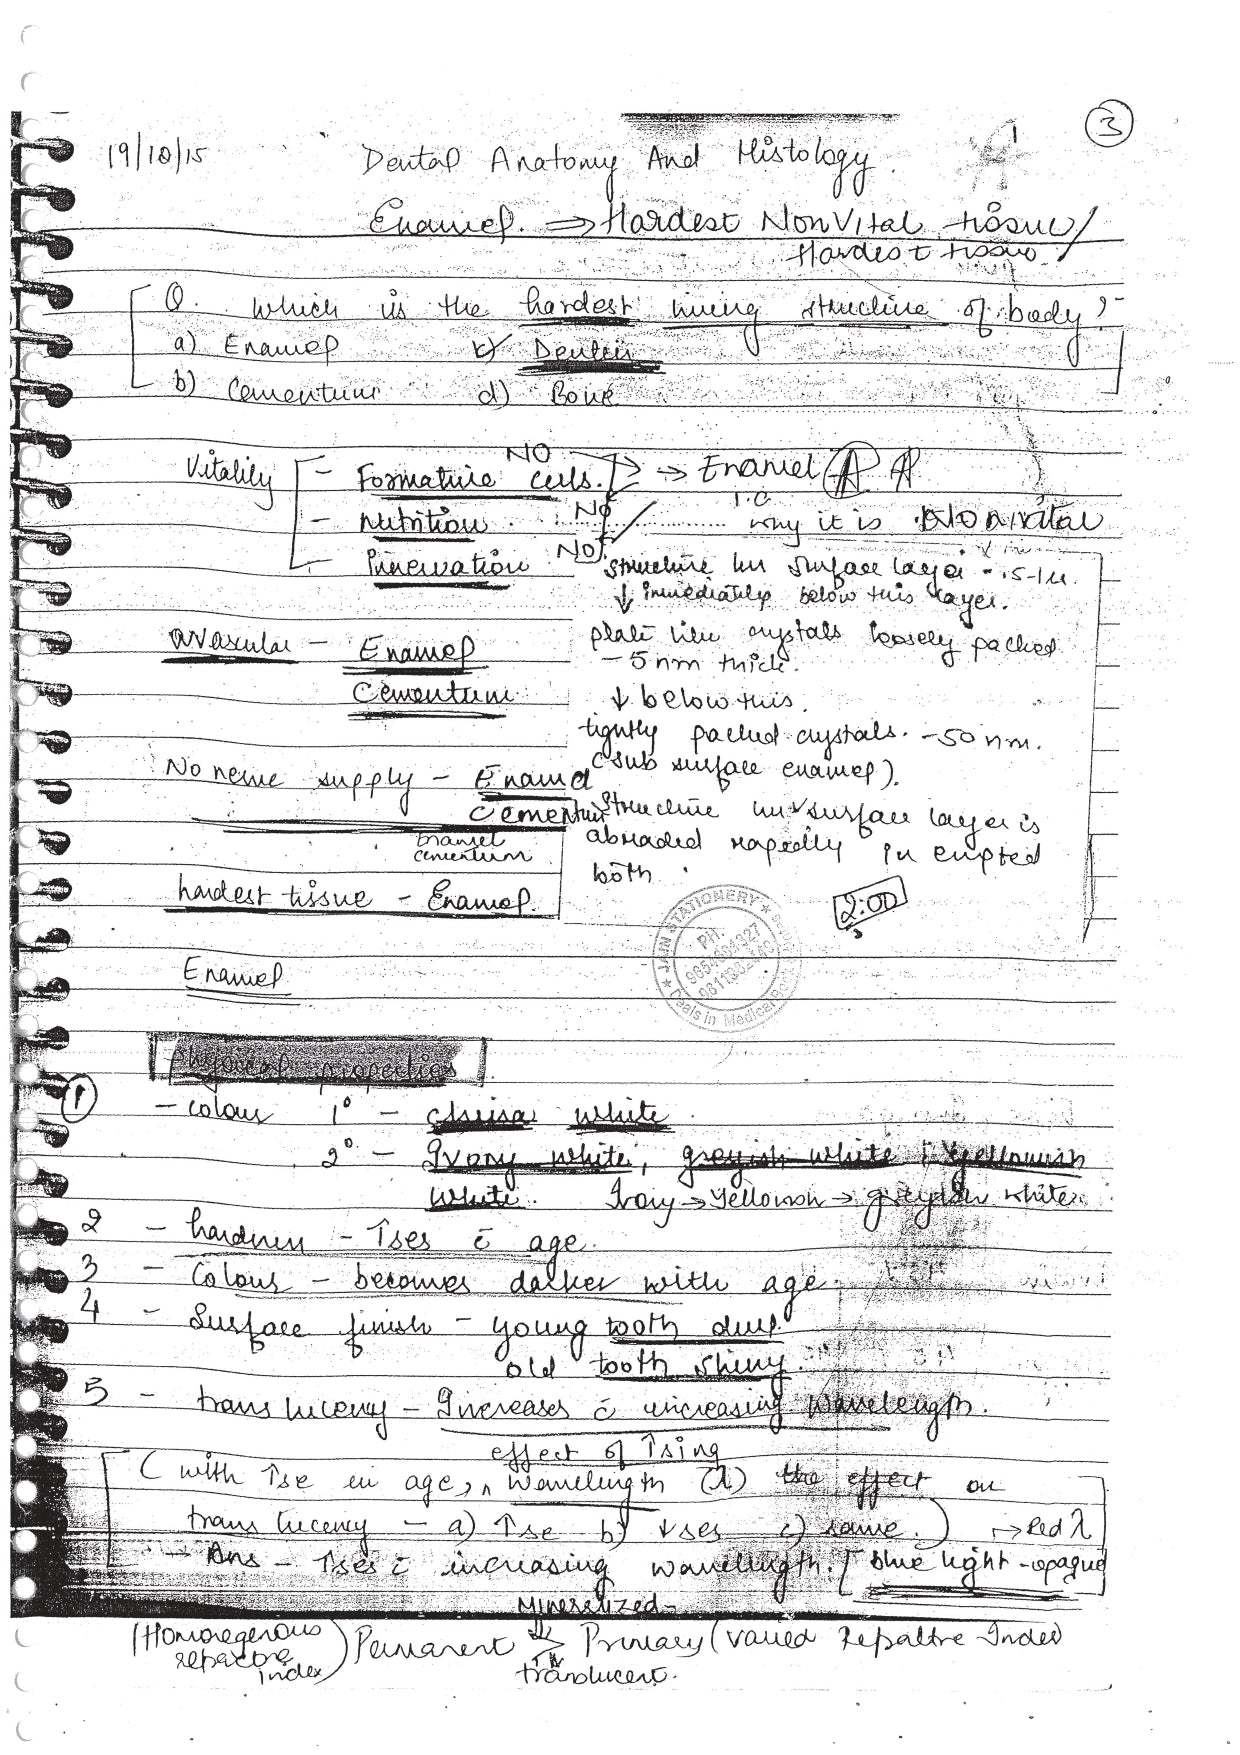 3
19/10/15 Dental Anatomy And Histology
Enamel. ⇒ Hardest NonVital tissue/
Hardest tissue
Q. which is the hardest living structure of body?
a) Enamel c) Dentin
b) Cementum d) Bone
Vitality - Formative cells. NO → Enamel
- Nutrition NO i.e why it is Nonvital
- Innervation NO
structure less surface layer - .5-1u.
↓ immediately below this layer.
plate like crystals loosely packed
- 5nm thick.
↓ below this.
tightly packed crystals. - 50nm.
(sub surface enamel).
structure less surface layer is
abraded rapidly in erupted
tooth.
2:00
avascular - Enamel
Cementum
No nerve supply - Enamel
Cementum
Enamel
cementum
hardest tissue - Enamel.
JAIN STATIONERY
PH.
Deals in Medical
Enamel
Physical properties
1 - colour 1° - china white
2° - Ivory white, greyish white, yellowish
white. Ivory → Yellowish → greyish white
2 - hardness - ↑ses c̄ age.
3 - Colour - becomes darker with age.
4 - Surface finish - young tooth dull
old tooth shiny.
5 - translucency - Increases c̄ increasing wavelength.
effect of ↑sing
(with ↑se in age, ^ wavelength (λ) the effect on
translucency - a) ↑se b) ↓ses c) same.) → Red λ
→ Ans - ↑ses c̄ increasing wavelength. [blue light - opaque
Mineralized
(Homoregenous refractore index) Permanent > Primary (varied Refractre Index)
translucent.